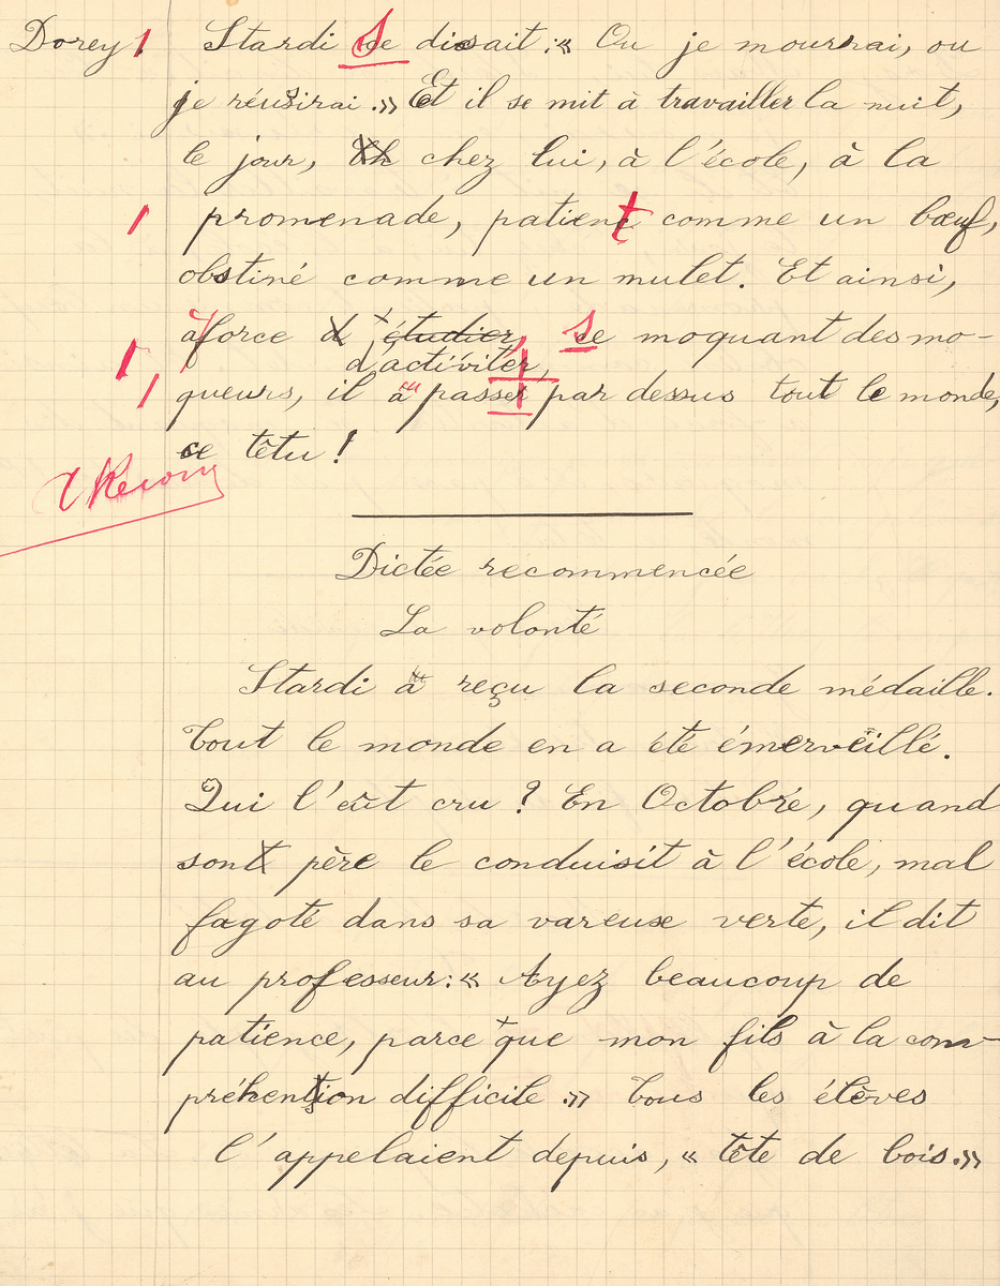 Dorey 1 Stardi se disait : « Ou je mourrai, ou
je réusirai .» Et il se mit à travailler la nuit,
le jour, chez lui, à l'école, à la
1 promenade, patient comme un bœuf,
obstiné comme un mulet. Et ainsi,
à force d'étudier, se moquant des mo-
1 d'activiter,
1 queurs, il à passer par dessus tout le monde,
ce têtu !
Dictée recommencée
La volonté
Stardi a reçu la seconde médaille.
Tout le monde en a été émerveillé.
Qui l'eût cru ? En Octobre, quand
sont père le conduisit à l'école, mal
fagoté dans sa vareuse verte, il dit
au professeur : « Ayez beaucoup de
patience, parce que mon fils à la com-
préhention difficile .» Tous les élèves
l'appelaient depuis, « tête de bois.»